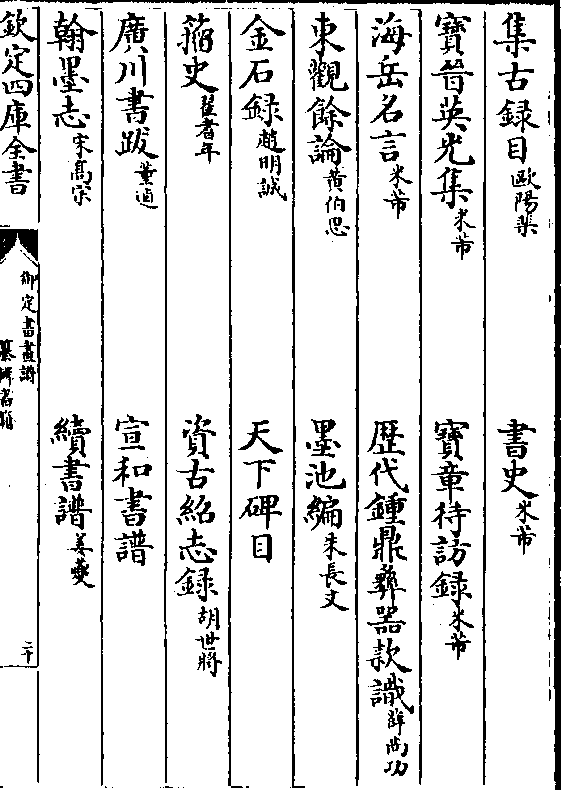 集古録目歐陽棐
書史米芾
寶晉英光集米芾
寶章待訪録米芾
海岳名言米芾
歴代鍾鼎彞器款識薛尚功
東觀餘論黄伯思
墨池編朱長文
金石録趙明誠
天下碑目
籀史翟耆年
資古紹志録胡世將
廣川書跋董逌
宣和書譜
翰墨志宋髙宗
續書譜姜夔
欽定四庫全書
御定書畫譜
纂輯書籍
二十